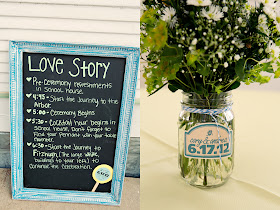 Love Story
Pre-Ceremony refreshments
in school house.
4:45 - Start the Journey to the
Arbor.
5:00 - Ceremony Begins
5:30 - Cocktail hour begins in
School house. Don't forget to
find your Pennant with your table
number.
6:30 - Start the Journey to
Fitzhugh, (The large white
building to your left,) to
Continue the Celebration.
6.17.12